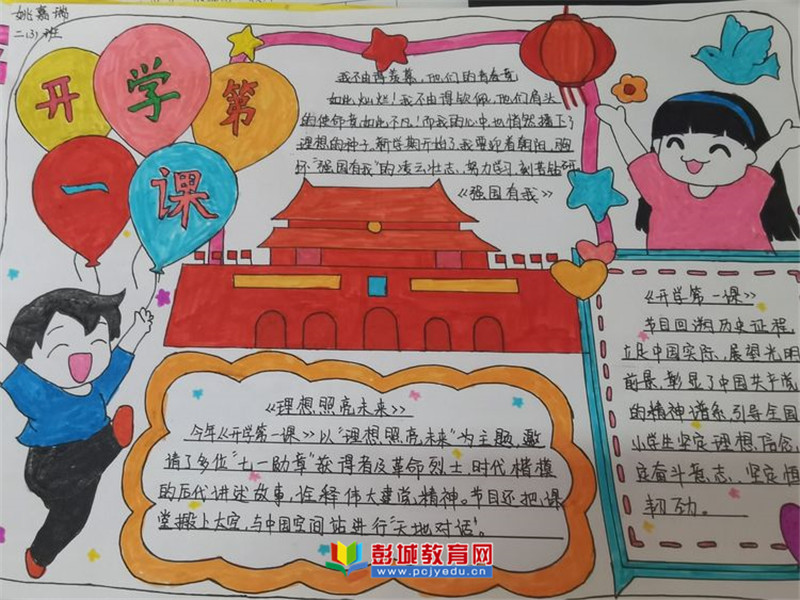 姚嘉瑞
二(3)班
开学第
一课
我不由得羡慕,他们的青春竟
如此灿烂!我不由得钦佩,他们肩头
的使命竟如此不凡!而我的心中也悄然播下了
理想的种子,新学期开始了,我要迎着朝阳,
怀“强国有我”的凌云壮志,努力学习,刻苦钻研
《强国有我》
《开学第一课》
节目回溯历史征程,
立足中国实际,展望光明
前景,彰显了中国共产党
的精神谱系,引导全国
小学生坚定理想,信念,
定奋斗意志、坚定恒
韧劲。
《理想照亮未来》
今年《开学第一课》以“理想照亮未来”为主题,邀
请了多位“七一勋章”获得者及革命烈士,时代楷模
的后代讲述故事,诠释伟大建党精神。节目还把课
堂搬上太空,与中国空间站进行“天地对话”。
彭城教育网
www.pcjyedu.cn